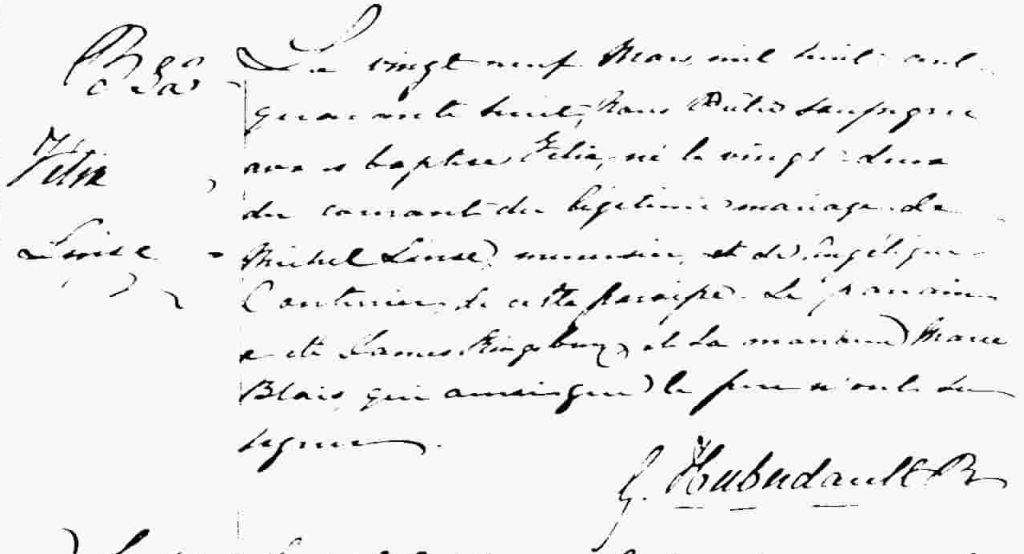 B 39
Félix
Linse
Le vingt neuf Mars mil huit cent
quarante huit, Nous Prêtre soussigné
avons baptisé Félix, né le vingt-deux
du courant du légitime mariage de
Michel Linse, menuisier, et de Angélique
de cette paroisse. Le parrain
a été James Kingsbury et la marraine Marie
Blais, qui ainsi que le père n'ont su
signer.
G. Huberdault Ptr